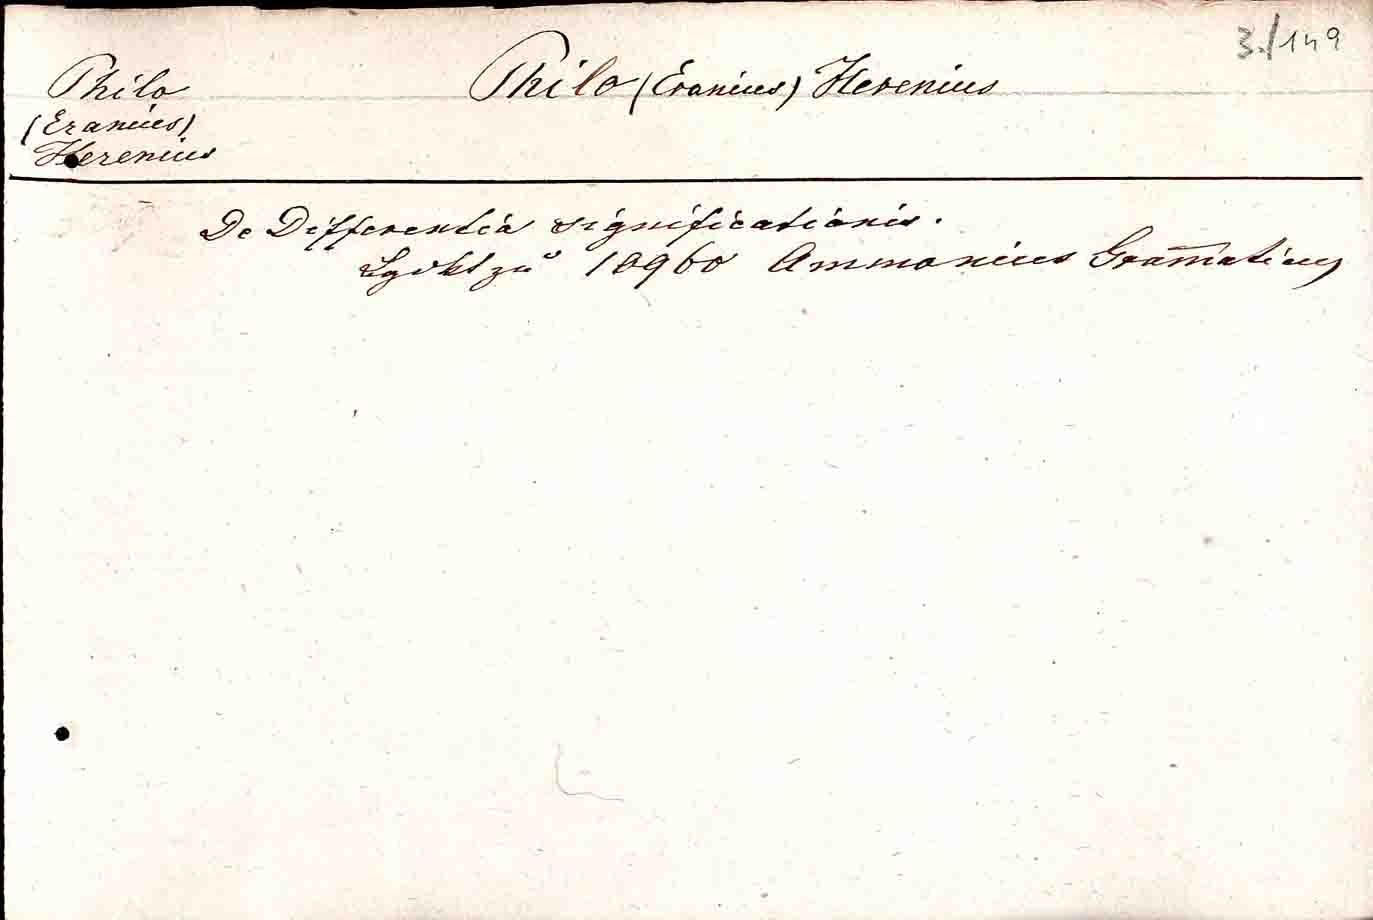 3./149
Philo (Eranius) Herenius
Philo
(Eranius)
Herenius
De Differentia significationis.
zu 10960 Ammonius Gram̄aticus